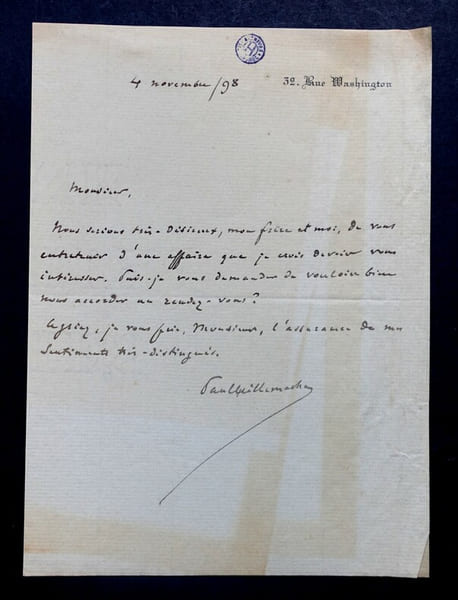 4 novembre/98
32. Rue Washington
Monsieur,
Nous serions très-désireux, mon frère et moi, de vous
entretenir d'une affaire que je crois devoir vous
intéresser. Puis-je vous demander de vouloir bien
nous accorder un rendez-vous?
Agréez, je vous prie, Monsieur, l'assurance de mes
sentiments très-distingués.
PaulHillemacher